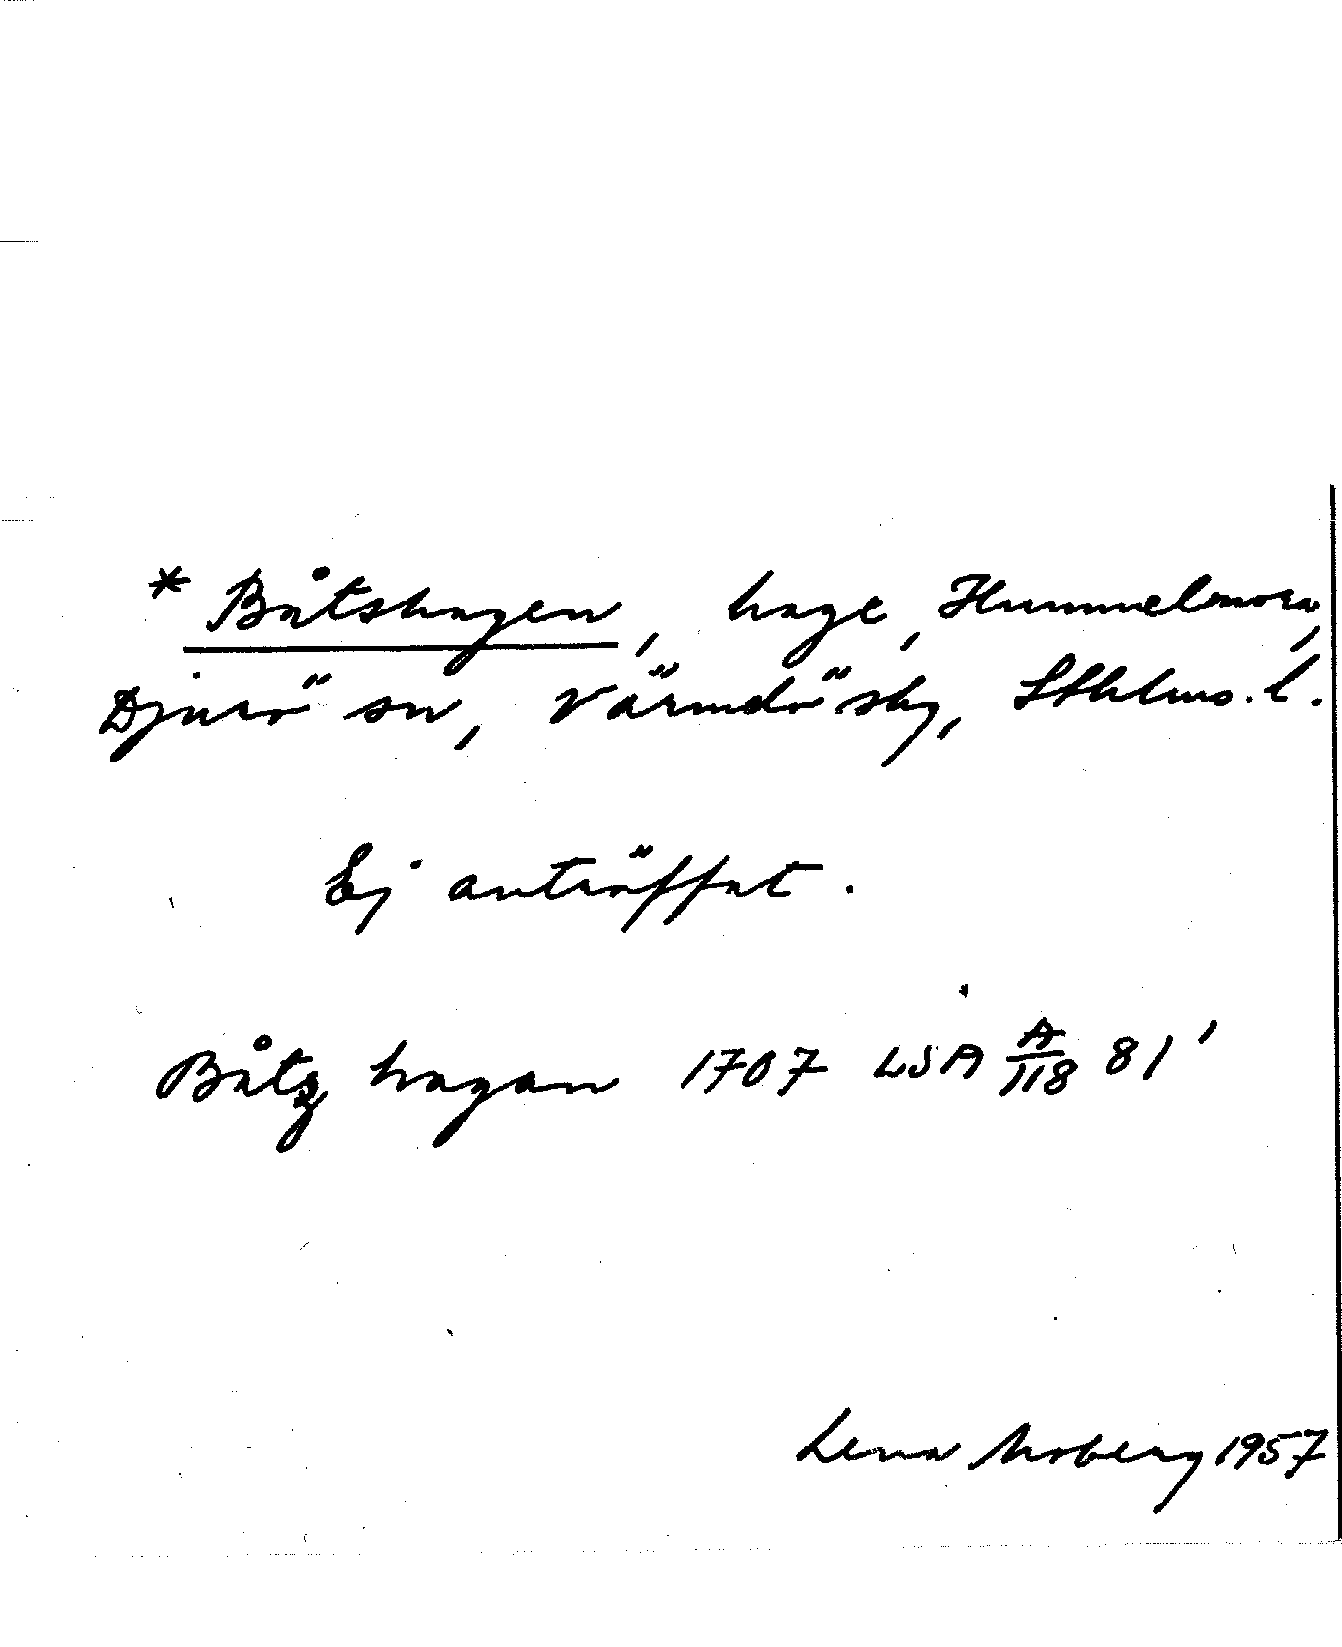 * Båtshagen, hage, Hummelmora,
Djurö sn, Värmdö sky, Sthlms. l.
Ej anträffat.
Båtz hagan 1707 LSA A/118 81'
Lena Moberg 1957